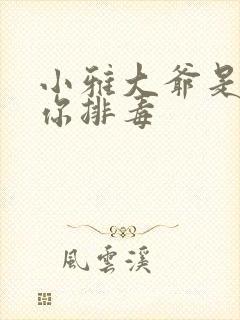 小雅大爷是
你排毒
風雲溪